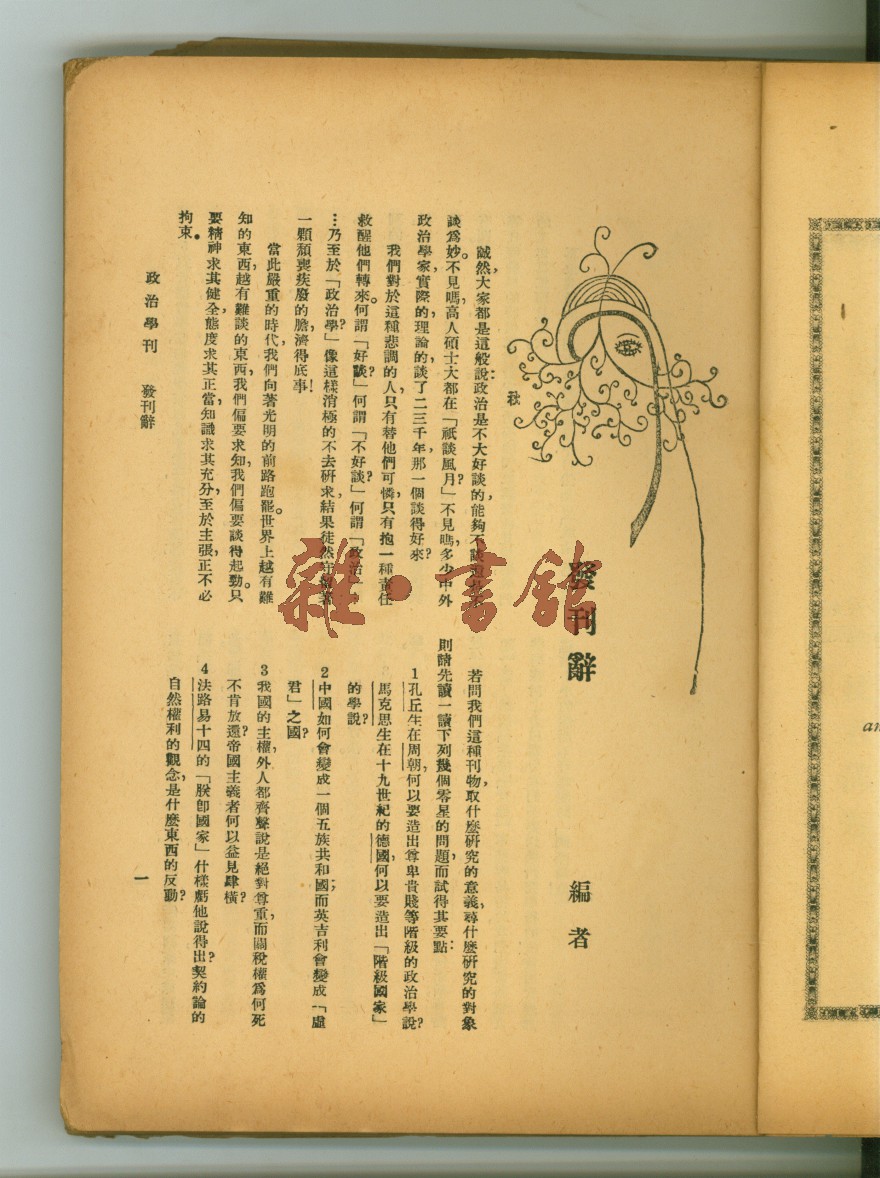 發刊辭
編者
秋
誠然，大家都是這般說：政治是不大好談的，能夠不談
談爲妙。不見嗎，高人碩士大都在「祇談風月」？不見嗎，多少中外
政治學家，實際的理論的談了二三千年，那一個談得好來？
我們對於這種悲調的人，只有替他們可憐，只有抱一種責任
救醒他們轉來。何謂「好談」？何謂「不好談」？何謂「政治」？…
…乃至於「政治學」？像這樣消極的不去研求，結果徒然守
一顆頹喪疾廢的膽，濟得底事！
當此嚴重的時代，我們向著光明的前路跑罷。世界上越有難
知的東西，越有難談的東西，我們偏要求知，我們偏要談得起勁。只
要精神求其健全，態度求其正當，知識求其充分，至於主張，正不必
拘束。
若問我們這種刊物，取什麼研究的意義，尋什麼研究的對象，
則請先讀一讀下列幾個零星的問題，而試得其要點：
1 孔丘生在周朝，何以要造出尊卑貴賤等階級的政治學說？
馬克思生在十九世紀的德國，何以要造出「階級國家」
的學說？
2 中國如何會變成一個五族共和國；而英吉利會變成「虛
君」之國？
3 我國的主權，外人都齊聲說是絕對尊重，而關稅權爲何死
不肯放還？帝國主義者何以益見肆橫？
4 法路易十四的「朕卽國家」什樣虧他說得出？契約論的
自然權利的觀念，是什麼東西的反動？
政治學刊 發刊辭
一
雜·書館
an